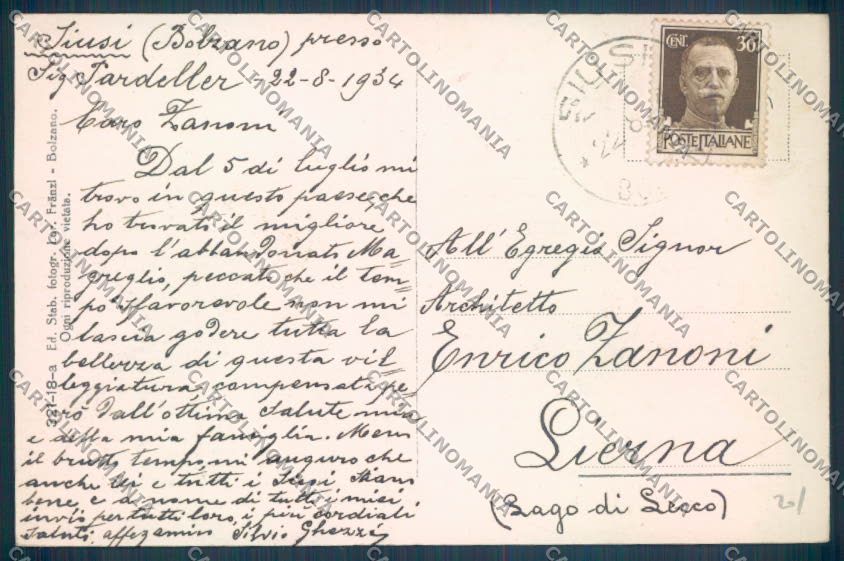 Siusi (Bolzano) presso
Sig Pardeller - 22-8-1934
Caro Zanoni
Dal 5 di luglio mi
trovo in questo paese, che
ho trovato il migliore
dopo l'abbandonato Ma=
greglio, peccato che il tem=
po sfavorevole non mi
lascia godere tutta la
bellezza di questa vil=
leggiatura compensata pe=
rò dall'ottima salute mia
e della mia famiglia. Meno
il brutto tempo mi auguro che
anche Lei e tutti i Suoi stiano
bene e a nome di tutti i miei
invio per tutti loro, i più cordiali
saluti, affezmimo Silvio Ghezzi
321-18-a Ed. Stab. fotogr. Fränzl - Bolzano.
Ogni riproduzione vietata.
SIUSI
CENT. 30
POSTE ITALIANE
All'Egregio Signor
Architetto
Enrico Zanoni
Lierna
(Lago di Lecco)
20/
CARTOLINOMANIA